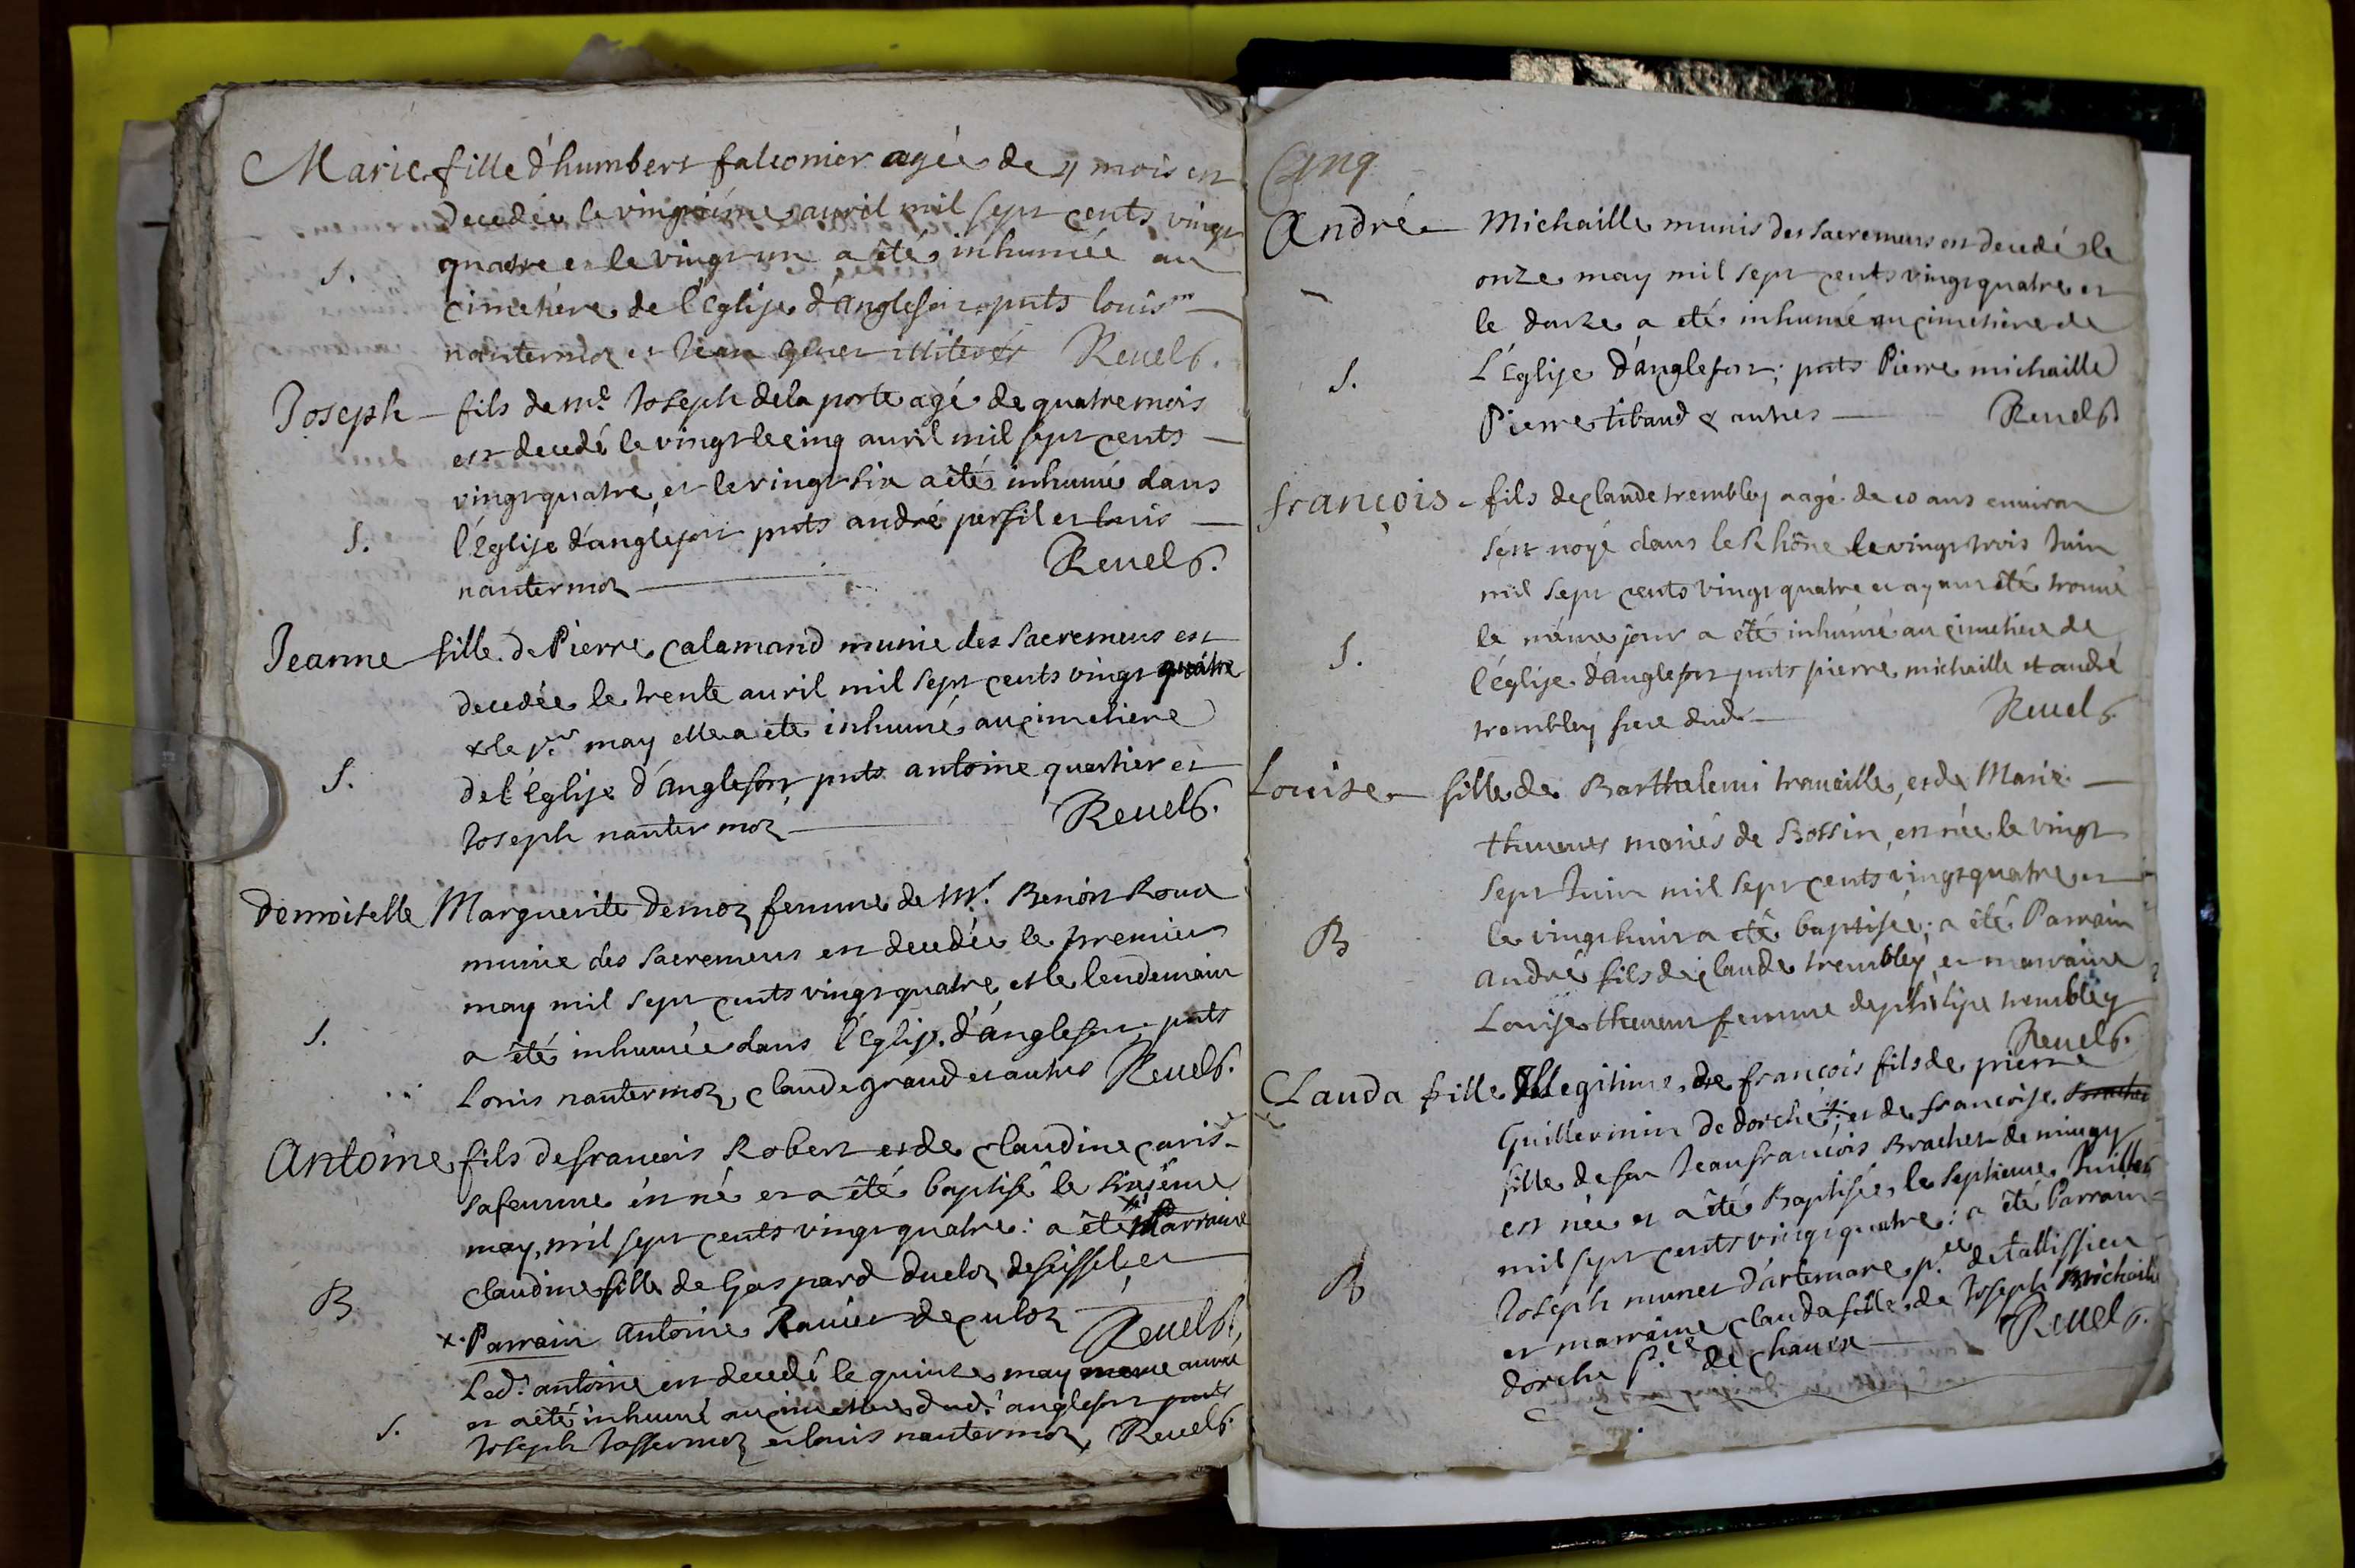 Marie fille d'humbert falconier agée de 4 mois est
decedée le vingtiéme avril mil sept cents vingt
quatre et le vingt un a été inhumée au
S.
cimetiére de l'Eglise d'anglefort pnts louis
nantermoz et Jean illiterés Revel
Joseph - fils de me. Joseph dela porte agé de quatre mois
est decedé le vingt cinq avril mil sept cents
vingt quatre, et le vingt six a été inhumé dans
S. l'Eglise d'anglefort pnts andré persil et louis
nantermoz Revel
Jeanne fille de Pierre Calamand munie des Sacremens est
decedée le trente avril mil sept cents vingt quatre
& le pr. may elle a été inhumé au cimetiére
S. de l'Eglise d'anglefort pnts antoine quartier et
Joseph nantermoz Revel
Demoiselle Marguerite Demoz femme de Mr. Benoit Roux
munie des Sacremens est decedée le premier
may mil sept cents vingt quatre et le lendemain
S. a été inhumée dans l'Eglise d'anglefort pnts
Louis nantermoz, Claude grand et autres Revel
Antoine fils de francois Robert et de Claudine
sa femme est né et a été baptisé le sixiéme
may, mil sept cents vingt quatre: a été Marraine
B Claudine fille de Gaspard Ducloz de seissel, et
x. Parrain Antoine Ravier de culoz Revel
Led. antoine est decedé le quinze may
et a été inhumé au cimetiére dud. anglefort pnts
S. Joseph Jossermoz et louis nantermoz, Revel
Cinq
André - Michaille munis des Sacremens est decedé le
onze may mil sept cents vingt quatre et
le douze a été inhumé au cimetiére de
S. L'Eglise d'anglefort; pnts Pierre michaille
Pierre tibaud & autres Revel
françois - fils de Claude trembley agé de 10 ans environ
s'est noyé dans le Rhône le vingt trois Juin
mil sept cents vingt quatre et ayant été trouvé
le même jour a été inhumé au cimetiére de
S. l'église d'anglefort pnts pierre michaille et andré
trembley frere dud. Revel
Louise - fille de Barthelemi travaille, et de Marie -
thevenet mariés de Bossin, est née le vingt
Sept Juin mil Sept cents vingt quatre et
B le vingt huit a été baptisée; a été Parrain
André fils de Claude trembley, et marraine
Louise thevenet femme de philipe trembley
Revel
Clauda fille Illegitime, de françois fils de pierre
Guillermin de dorche; et de françoise
fille de feu Jean francois Brachet de mingy
est née et a été Baptisée, le septieme Juillet
mil sept cents vingt quatre: a été Parrain
B Joseph munet d'artemare p.sse de tallissieu
et marraine clauda fille de Joseph Michaille
dorche p.sse de chanex Revel